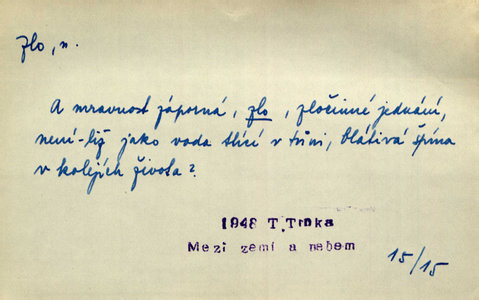 zlo, n.
A mravnost záporná, zlo, zločinné jednání,
není-liž jako voda tlící v tůni, blátivá špína
v kolejích života?
1948 T. Trnka
Mezi zemí a nebem
15/15